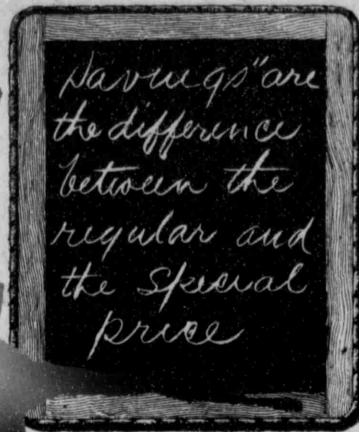 Savings" are
the difference
between the
regular and
the Special
price